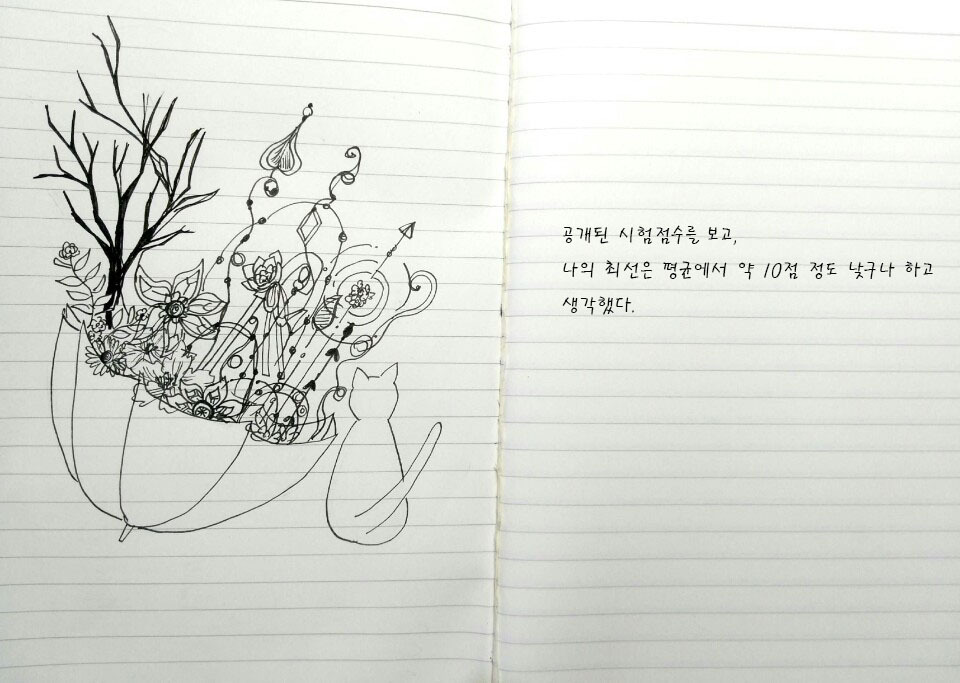 공개된 시험점수를 보고,
나의 최선은 평균에서 약 10점 정도 낮구나 하고
생각했다.